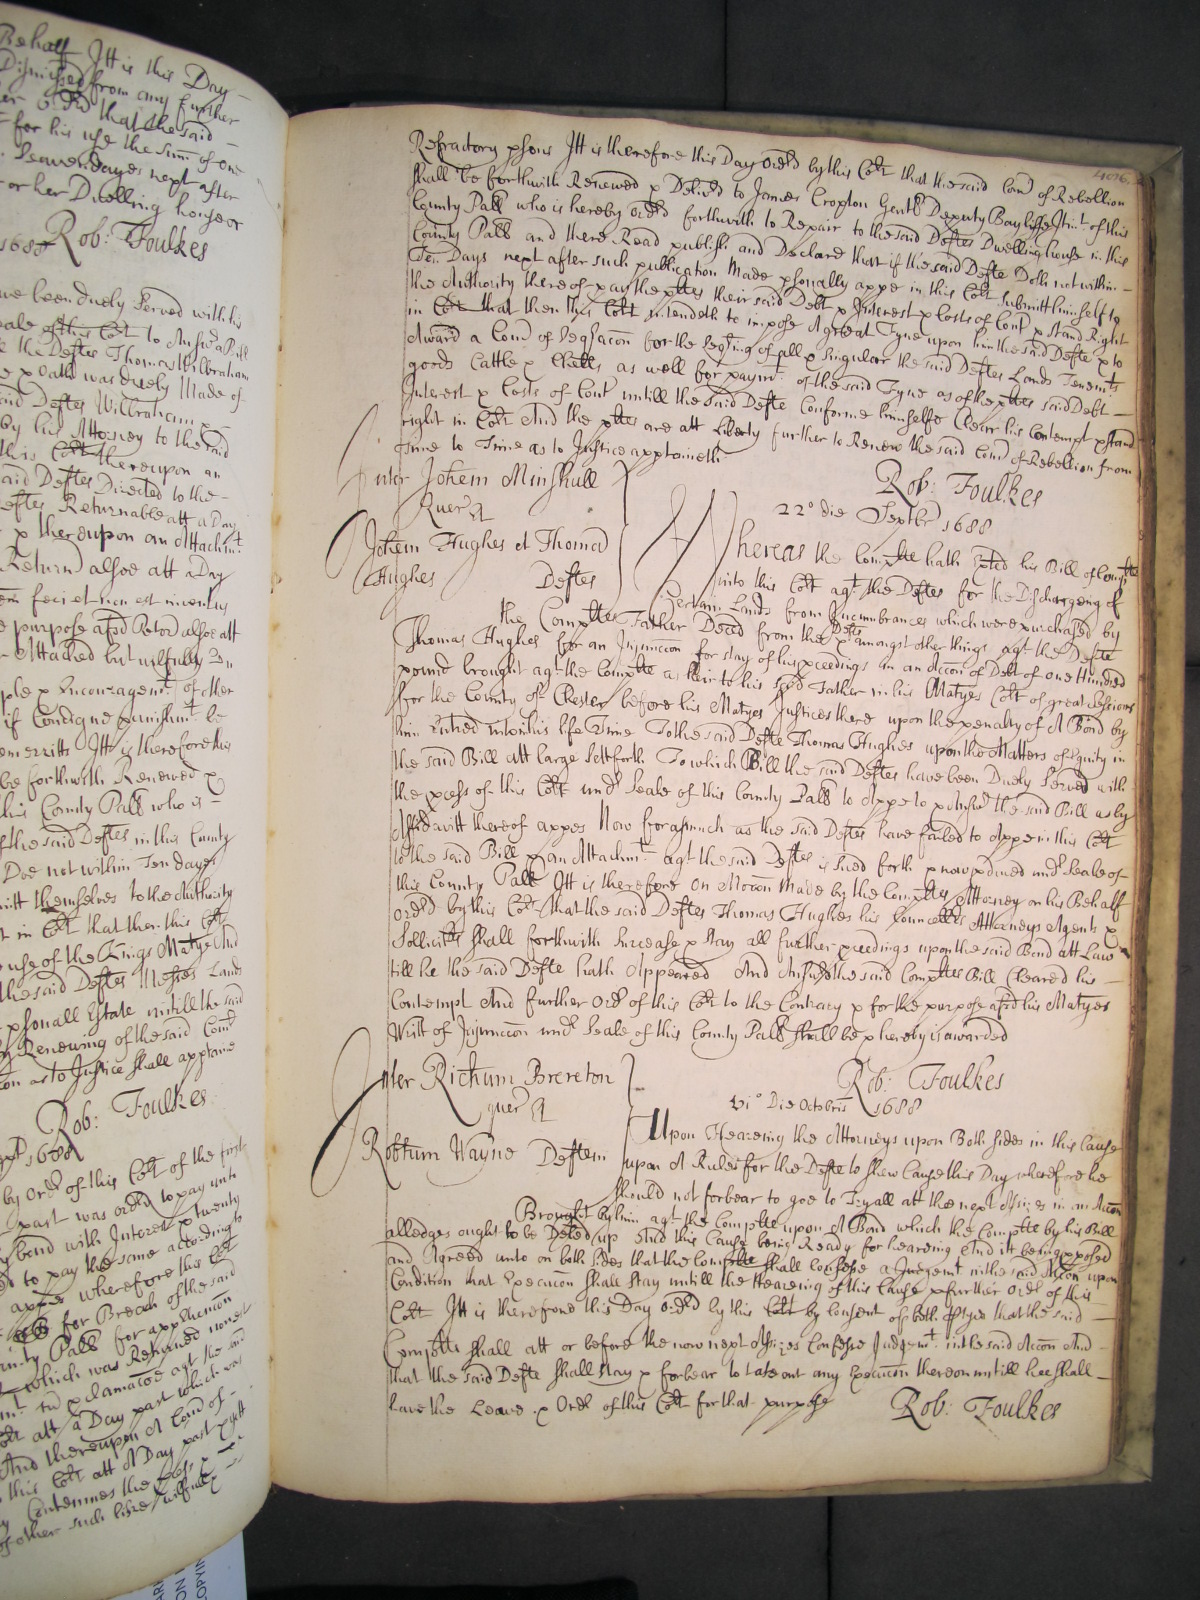 Behalf Itt is this Day
Dismissed from any further
Ord that the said
for his use the sum of one
Seaven dayes next after
or her Dwelling house or
Rob: Foulkes
been duely Served with his
seale of this Cott to Answ a Bill
the Defte Thomas Wilbraham
x Oath was duely Made of
said Deftes Wilbraham
By his Attorney to the said
this Cott thereupon an
said Deftes Directed to the
Deftes Returnable att a Day
x thereupon an Attachmt
Return alsoe att a Day
feci et non est inventus
purpose afsd Retord alsoe att
Attached but wilfully
ple x Encouragemt of other
if Condigne punishmt be
demerritts Itt is therefore this
be forthwith Renewed x
this County Palt who is
of the said Deftes in this County
Doe not within Ten dayes
submitt themselves to the Authority
in Cott that then this Cott
use of the Kings Matye And
the said Deftes Lands
x psonall Estate untill the said
Renewing of the said Comd
as to Justice shall apptaine
Rob: Foulkes
by Ordr of this Cott of the first
past was ordrd to pay unto
bond with Interest x twenty
to pay the same according to
wherefore this Cott
for Breach of the said
County Palt for apphencon
which was Returned
x clamacoe agt the said
att a Day past which was
And thereupon A Comd of
this Cott att A Day past x yett
Contemnes the
of other such like wilfull
406
Refractory psons Itt is therefore this Day Ordrd by this Cott that the said Comd of Rebellion
shall be forthwith Renewed x Delivd to James Cropton Gent Deputy Bayliffe Itint of this
County Palt who is hereby ordrd forthwith to Repair to the said Deftes Dwelling house in this
County Palt and there Read publish and Declare that if the said Defte Doth not within
Ten Days next after such publication Made psonally appe in this Cott submitt himself to
the Authority thereof x pay the pltes their said Debt x Interest x Costs of Cont x stand Right
in Cott that then this Cott intendeth to impose A great Fyne upon him the said Defte x to
Award a Comd of Seqracon for the Seqring of all x Singular the said Deftes Lands Tenemts
goods Cattle x Chells as well for paymt of the said Fyne as of the pltes said Debt
Interest x Costs of Cont untill the said Defte Conforme himselfe Clear his Contempt x stand
right in Cott And the pltes are att Liberty further to Renew the said Comd of Rebellion from
Time to Time as to Justice apptaineth
Rob: Foulkes
Inter Johem Minshull
Quer et
Johem Hughes et Thomam
Hughes Deftes
22° die Septbr 1688
Whereas the Complte hath xted his Bill of Complte
into this Cott agt the Deftes for the Discharging of
Certain Lands from Incumbrances which were purchased by
the Compltes Father Deced from the Deftes x amongst other things agt the Defte
Thomas Hughes for an Injunccon for stay of his pceedings in an Accon of Debt of one Hundred
pound brought agt the Complte as heir to his said Father in his Matyes Cott of great Sessions
for the County of Chester before his Matyes Justices there upon the penalty of A Bond by
him Entred into in his life Time To the said Defte Thomas Hughes upon the Matters of Equity in
the said Bill att large sett forth To which Bill the said Deftes have been Duely Served with
the pcess of this Cott undr Seale of this County Palt to Appe to x Answr the said Bill as by
Affidavitt thereof appes Now forasmuch as the said Deftes have failed to Appe in this Cott
to the said Bill x an Attachmt agt the said Deftes is sued forth x now pduced undr Seale of
this County Palt Itt is therefore on Mocon Made by the Compltes Attorney on his Behalf
Ordrd by this Cott that the said Deftes Thomas Hughes his Councells Attorneys Agents x
Sollicitrs shall forthwith Surcease x stay all further pceedings upon the said Bond att Law
till he the said Defte hath Appeared And Answr the said Compltes Bill Cleared his
Contempt And further Ordr of this Cott to the Contrary x for the purpose afsd his Matyes
Writt of Injunccon undr Seale of this County Palt shall be x hereby is awarded
Rob: Foulkes
Inter Richum Brereton
quer et
Robtum Wayne Deftem
11° Die Octobris 1688
Upon Hearing the Attorneys upon Both sides in this Cause
upon A Rule for the Defte to shew Cause this Day wherefore he
should not forbear to goe to Tryall att the next Assizes in an Accon
Brought by him agt the Complte upon A Bond which the Complte by his Bill
alledges ought to be Delivd up And this Cause being Ready for hearing And itt being pposed
and Agreed unto on both sides that the Complte shall confesse a Judgemt in the said Accon upon
Condition that Execucon shall stay untill the Hearing of this Cause x further Ordr of this
Cott Itt is therefore this Day Ordrd by this Cott by Consent of both ptyes that the said
Complte shall att or before the now next Assizes Confesse Judgemt in the said Accon And
that the said Defte shall stay x forbear to take out any Execucon thereon untill hee shall
have the Leave x Ordr of this Cott for that purpose
Rob: Foulkes